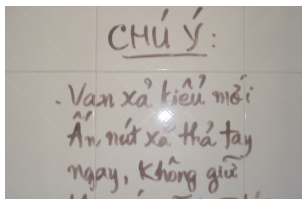 CHÚ Ý:
- Van xả kiểu mới
Ấn nút xả thả tay
ngay, không giữ